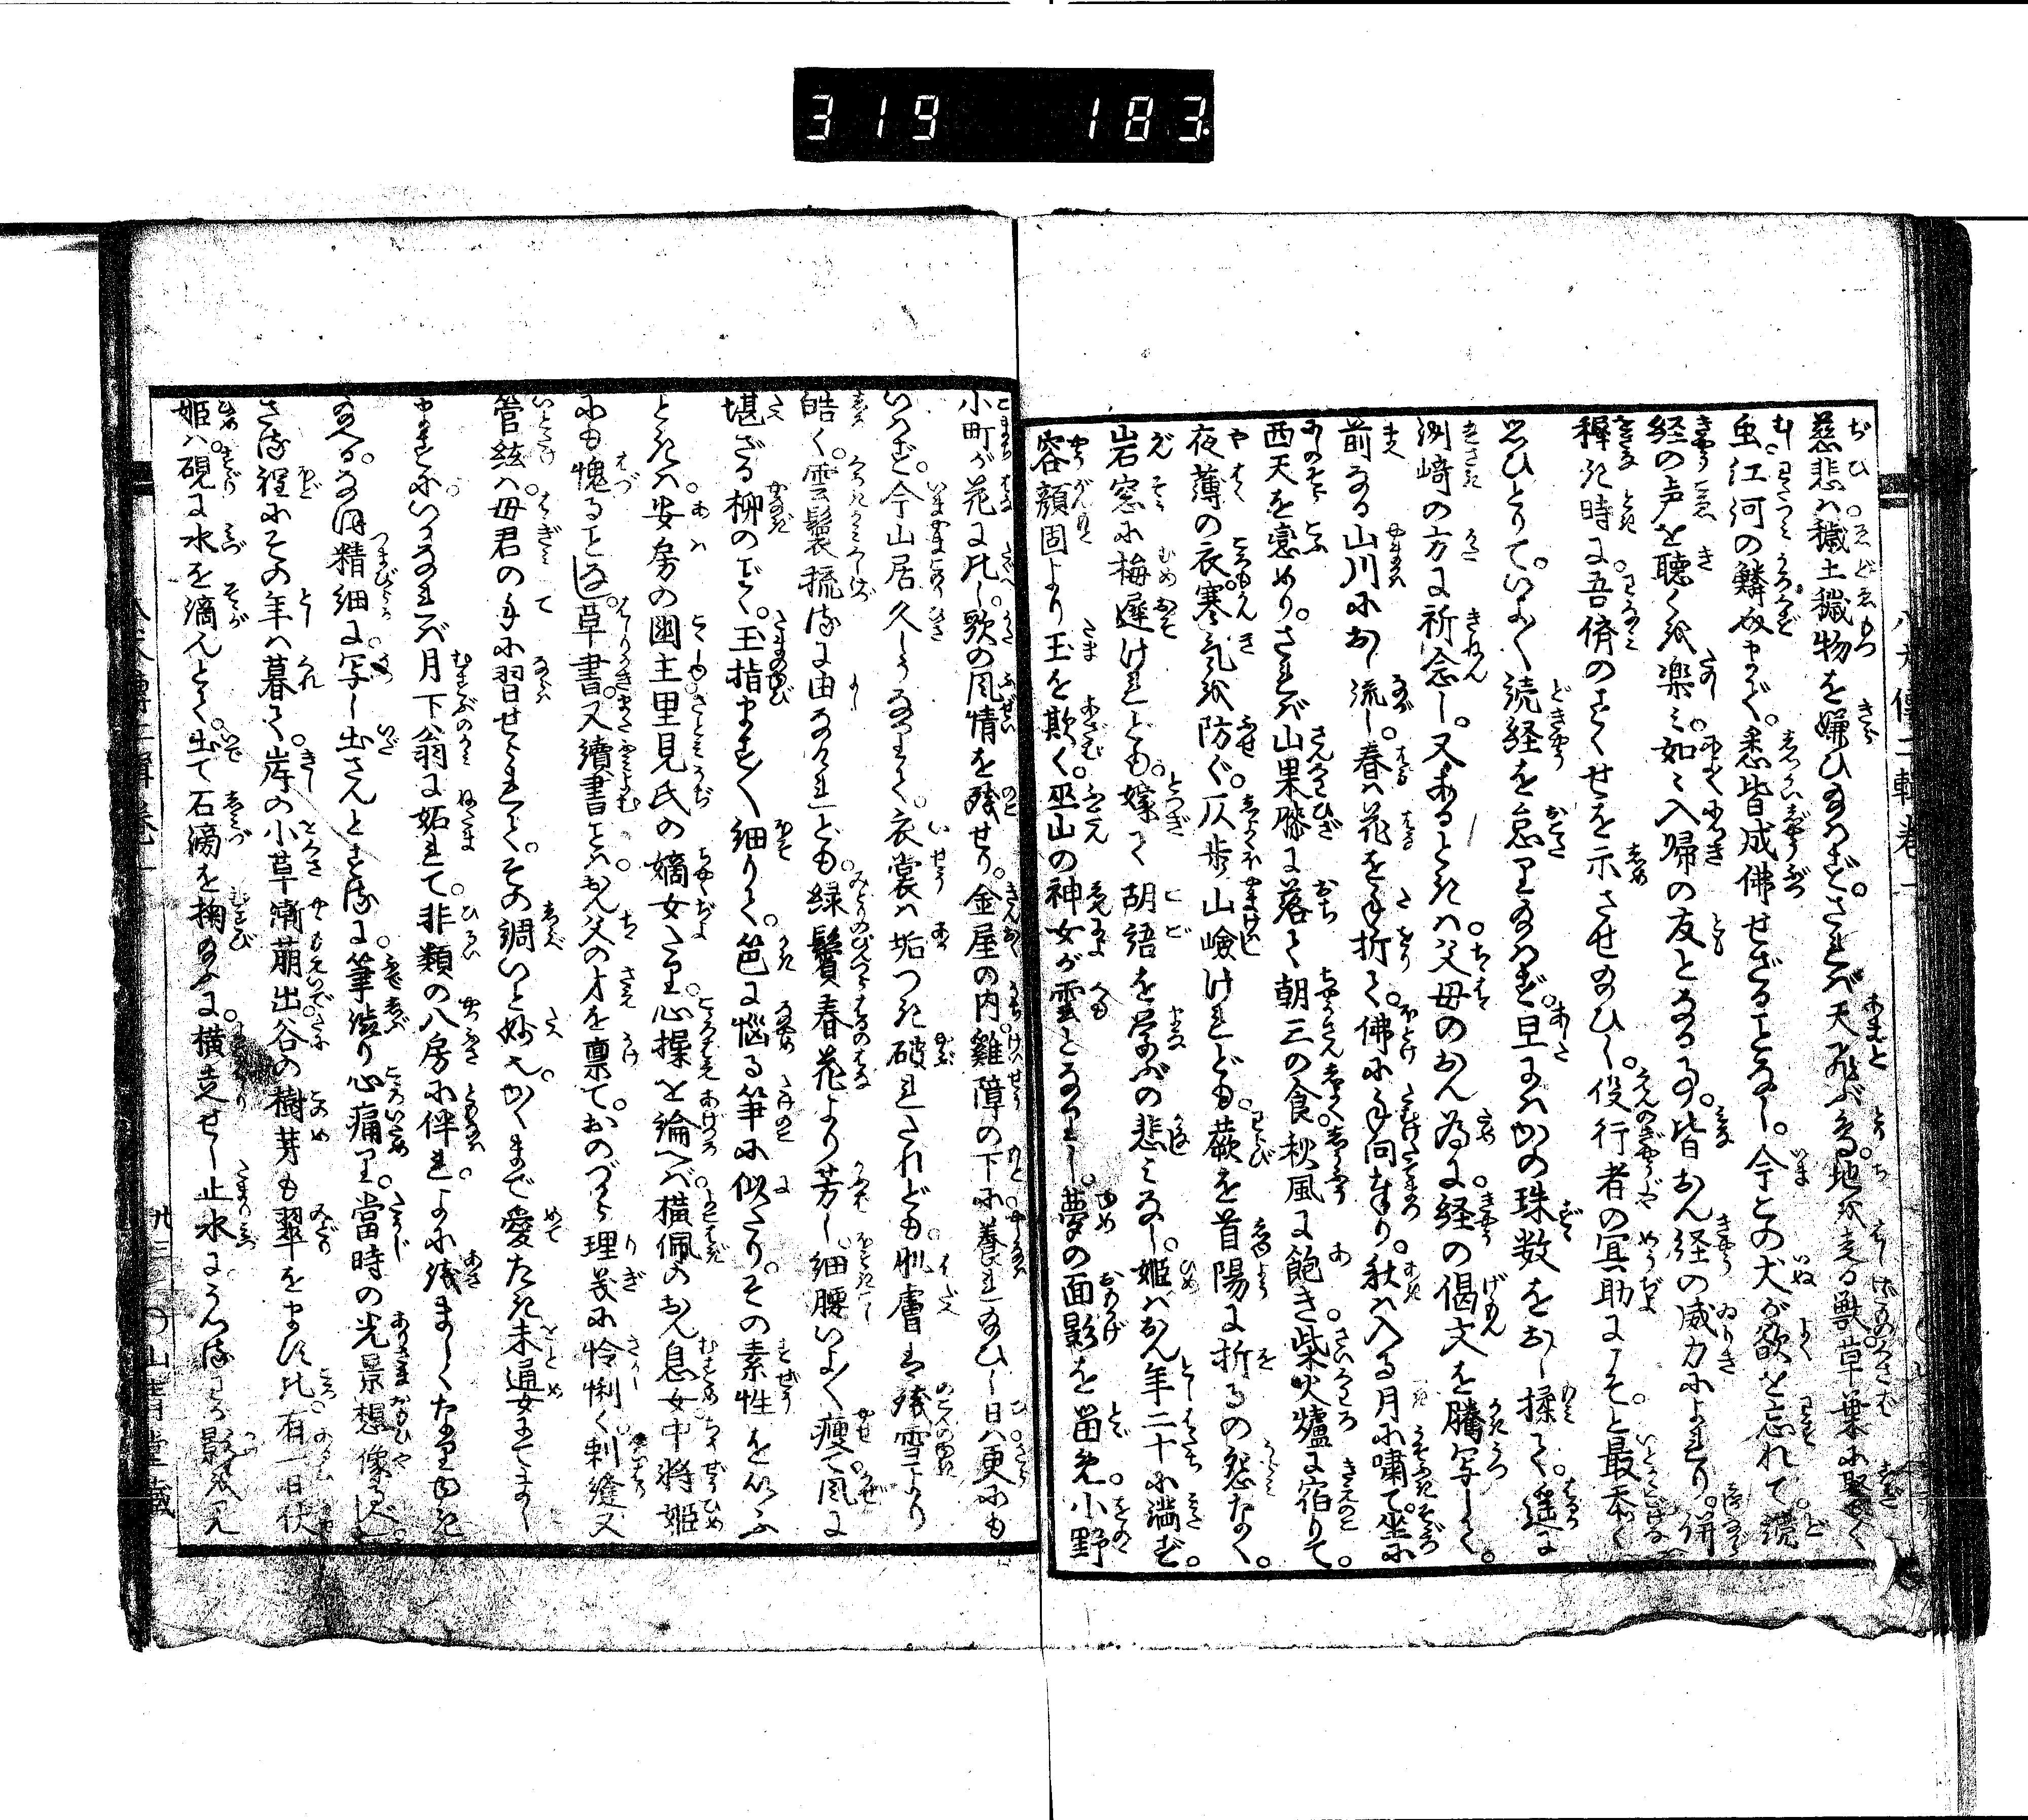 319 183
慈悲ハ穢土穢物を嫌ひ給はず。されば天飛ぶ鳥。地を走る獣草葉に聚く
虫江河の鱗介まで。悉皆成佛せざることなし。今この犬が欲を忘れて。讀
経の声を聴くを楽み。如々入帰の友となる事。皆おん経の威力によれり。併
穉き時に吾儕のうへを示させ給ひし。役行者の冥助にこそ。と最忝く
思ひとりて。いよ〳〵読経を怠り給はず。旦にはかの珠数をおし揉て。遥に
洲﨑の方に祈念し。又あるときハ父母のおん為に経の偈文を謄写して。
前なる山川におし流し。春ハ花を手折て。佛に手向奉り。秋ハ入る月に嘯て。坐に
西天を恋めり。されば山果膝に落て朝三の食秋風に飽き。柴火爐に宿りて。
夜薄の衣。寒気を防ぐ。仄歩山嶮けれども。蕨を首陽に折るの怨なく。
岩窓に梅遅けれども。嫁て胡語を学ぶの悲みなし。姫ハおん年二十に満ず。
容顔固より玉を欺く。巫山の神女が雲となりし。夢の面影を留め。小野
小町が花に比し。歌の風情を残せり。金屋の内。雞障の下に養れ給ひし日ハ。更にも
いはず。今山居久しうなるまゝ。衣裳ハ垢つき破れたれども。肌膚は残雪より
皓く。雲鬟梳るに由なけれども。緑鬢春花より芳し。細腰いよ〳〵痩て。風に
堪ざる柳のごとく。玉指ます〳〵細りて。笆に悩る笋に似たり。その素性をいふ
ときハ。安房の國主里見氏の嫡女たり。心操を論へば横佩のおん息女中将姫
にも愧ることなし。草書。又續書ことは。おん父の才を稟て。おのづから理義に怜悧く。刺縫又
管絃ハ。母君の手に習せられて。その調いと妙也。かくまで愛たき未通女にてまし
ますに。いかなれば月下翁に妬れて。非類の八房に伴れ。よに浅ましくなり給ひ
給へる。その精細に写し出さんとするに。筆澁り心痛り。當時の光景想像るべし。
さる程にその年は暮て。岸の小草漸萌出。谷の樹芽も翠をます比。有一日伏
姫ハ。硯に水を滴んとて。出て石湧を掬給ふに。横走せし止水にうつる影を見
山青堂藏